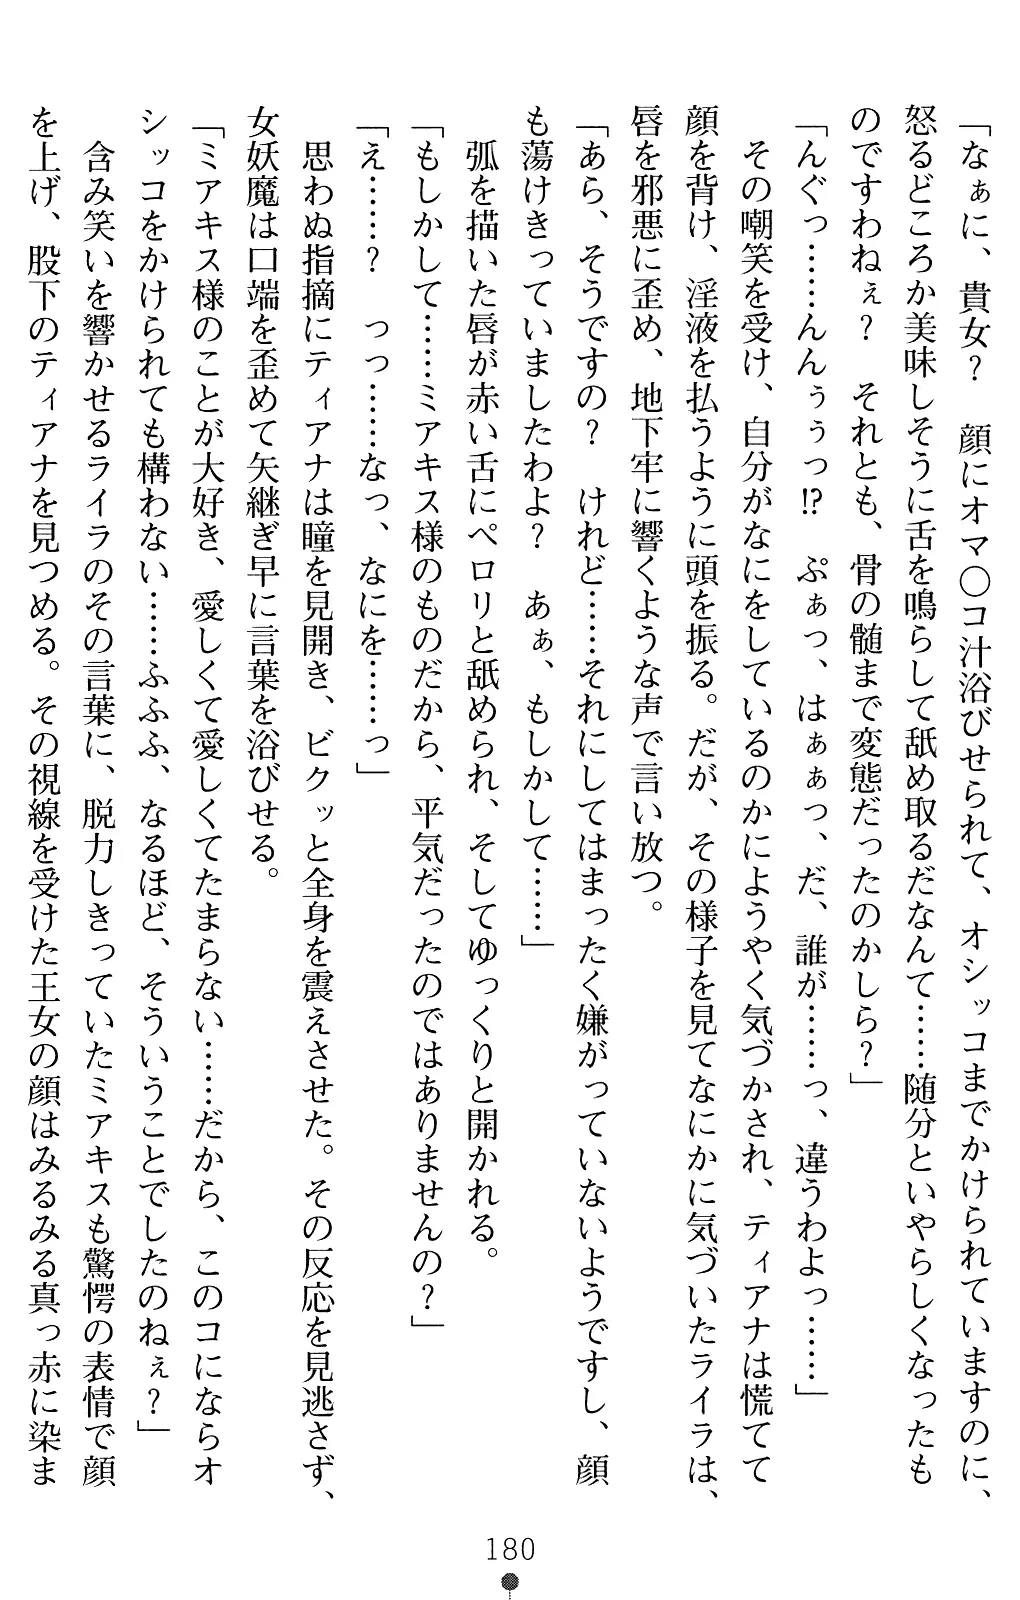 「なぁに、貴女？　顔にオマ〇コ汁浴びせられて、オシッコまでかけられていますのに、
怒るどころか美味しそうに舌を鳴らして舐め取るだなんて……随分といやらしくなったも
のですわねぇ？　それとも、骨の髄まで変態だったのかしら？」
「んぐっ……んんぅぅっ!?　ぷぁっ、はぁぁっ、だ、誰が……っ、違うわよっ……」
　その嘲笑を受け、自分がなにをしているのかにようやく気づかされ、ティアナは慌てて
顔を背け、淫液を払うように頭を振る。だが、その様子を見てなにかに気づいたライラは、
唇を邪悪に歪め、地下牢に響くような声で言い放つ。
「あら、そうですの？　けれど……それにしてはまったく嫌がっていないようですし、顔
も蕩けきっていましたわよ？　あぁ、もしかして……」
　弧を描いた唇が赤い舌にペロリと舐められ、そしてゆっくりと開かれる。
「もしかして……ミアキス様のものだから、平気だったのではありませんの？」
「え……？　っっ……なっ、なにを……っ」
　思わぬ指摘にティアナは瞳を見開き、ビクッと全身を震えさせた。その反応を見逃さず、
女妖魔は口端を歪めて矢継ぎ早に言葉を浴びせる。
「ミアキス様のことが大好き、愛しくて愛しくてたまらない……だから、このコにならオ
シッコをかけられても構わない……ふふふ、なるほど、そういうことでしたのねぇ？」
　含み笑いを響かせるライラのその言葉に、脱力しきっていたミアキスも驚愕の表情で顔
を上げ、股下のティアナを見つめる。その視線を受けた王女の顔はみるみる真っ赤に染ま
180